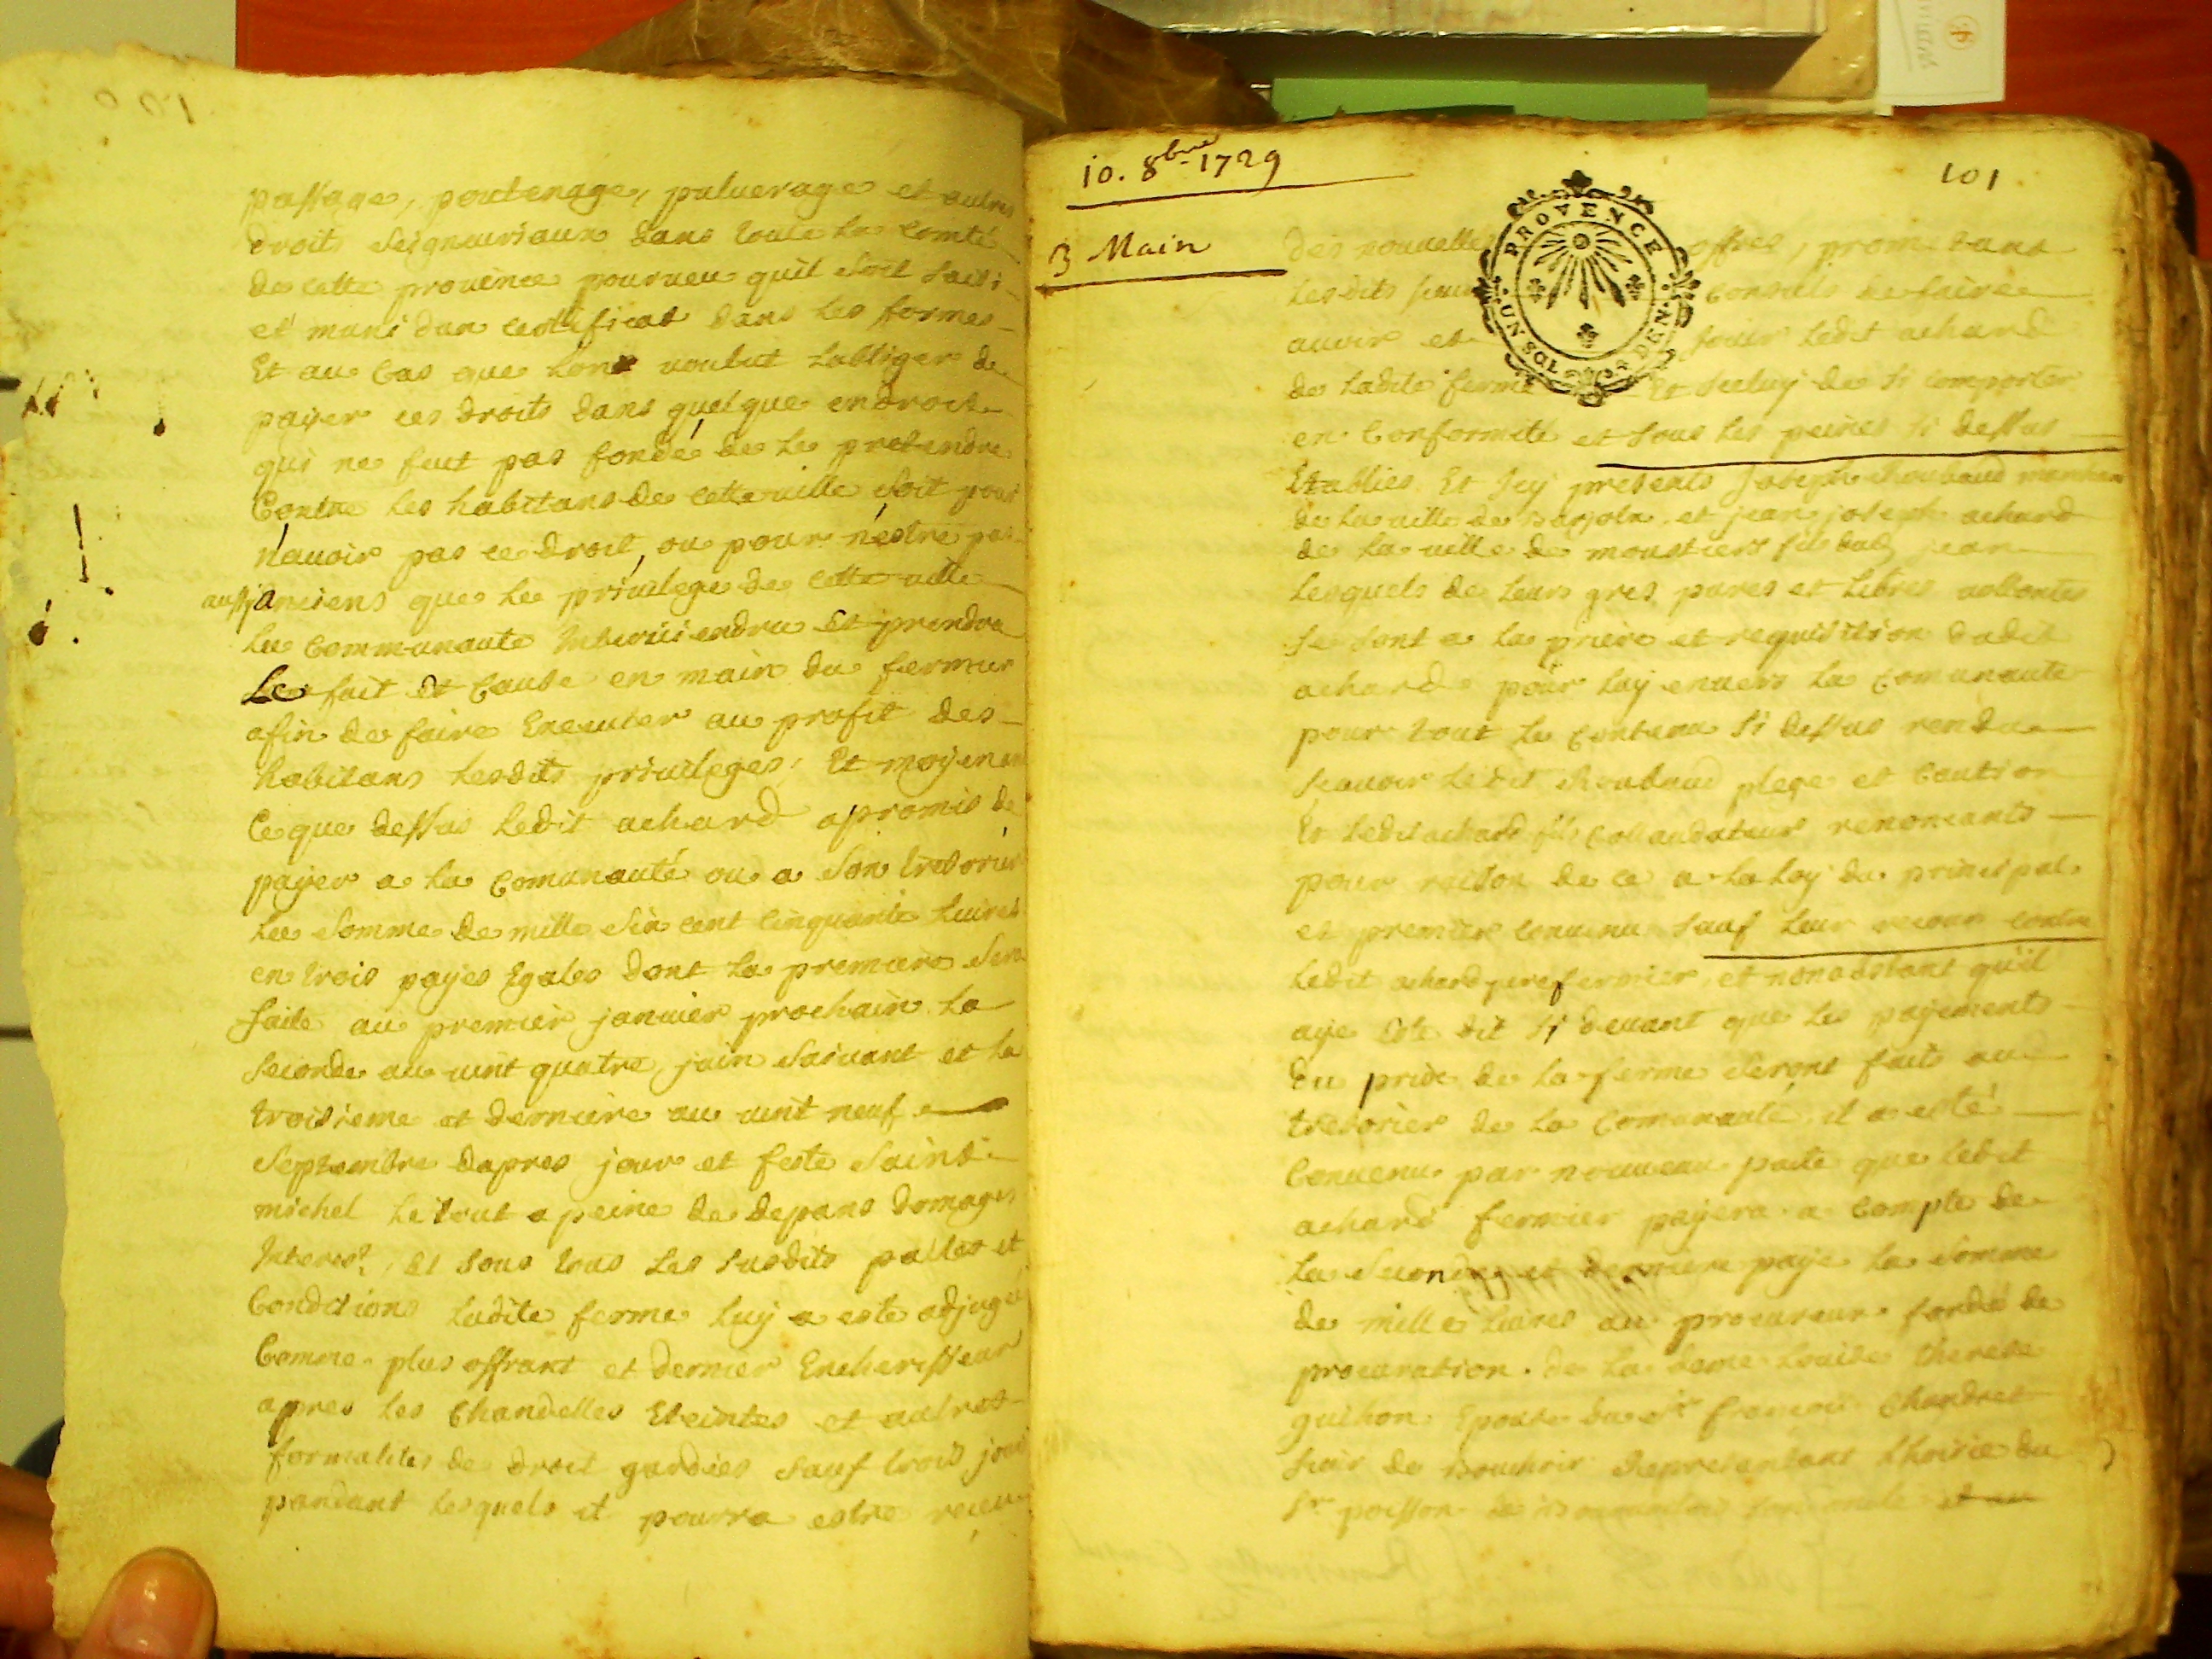 100
passage, poutenage, puluerage et autres
droits Seigneuriaux dans toute la Comté
de cette prouince pourueu quil soit saisi
et muni dun certificat dans les formes
Et au Cas que lon voulut lobliger de
payer ces droits dans quelque endroit
qui ne fut pas fondé de le pretendre
Contre les habitans de cette uille soit pour
n'auoir pas ce droit, ou pour n'estre pas
aussy anciens que le priuilege de cette uille
la Communauté Interuiendra et prendra
le fait et Cause en main du fermier
afin de faire Executer au profit des
habitans lesdits priuileges, Et moyenant
Ce que dessus ledit achard a promis de
payer a la Comunauté ou a son tresorier
la somme de mille six cent Cinquante liures
en trois payes Egales dont la premiere sera
faite au premier januier prochain la
seconde au uint quatre juin suiuant et la
troisieme et derniere au uint neuf
Septembre dapres jour et feste saint
michel le tout a peine de depans domages
Interest, Et sous tous les susdits pactes et
Conditions ladite ferme luy a esté adjugé
Comme plus offrant et dernier Encherisseur
apres les Chandelles Eteintes et autres
formalites de droit gardées sauf trois jours
pandant lesquels il pourra estre receu
10. 8bre 1729
101
3 Main
PROVENCE
UN SOL DEN.
des nouvelles offres, prometans
lesdits sieurs Consuls de faire
auoir et jouir ledit achard
de ladite ferme Et iceluy de si comporter
en Conformité et sous les peines si dessus
Etablies. Et Icy presents Joseph marchand
de la uille de Barjols et jean joseph achard
de la uille de moustiers fils dud jean
lesquels de leurs gres pures et libres vollontes
se sont a la priere et requisition dudit
achard pour luy enuers la Comunauté
pour tout le Contenu si dessus rendu
scauoir ledit plege et Caution
Et ledit achard fils Collaudateur renoncants
pour raison de ce a la loy du principal
et premier Conuenu sauf leur recour contre
ledit achard pere fermier, et nonobstant quil
aye esté dit si deuant que les payements
du prix de la ferme seront faits au
tresorier de la Comunauté, il a esté
Conuenu par nouueau pacte que ledit
achard fermier payera a Compte de
la seconde et derniere paye la somme
de mille liures au procureur fondé de
procuration de la dame Louise therese
guihon Epouse du sr francois
sieur de representant lhoirie du
Sr poisson de